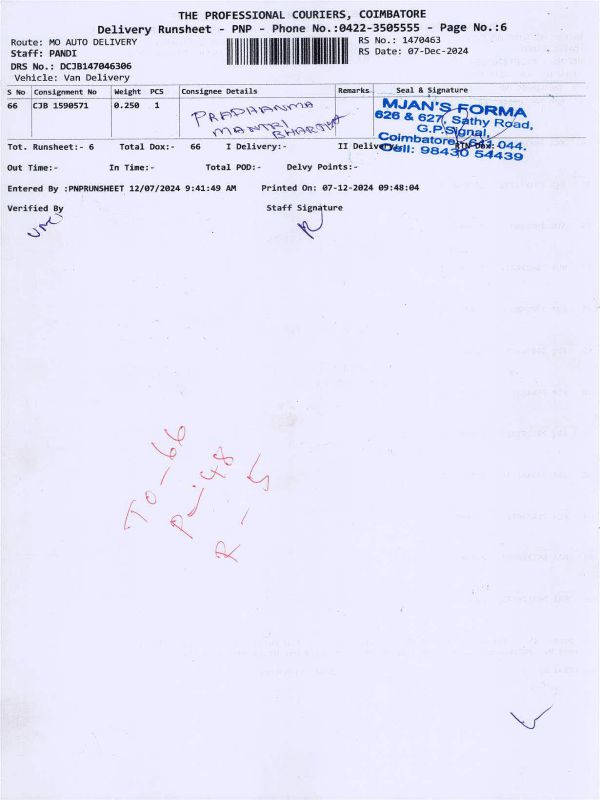 THE PROFESSIONAL COURIERS, COIMBATORE
Delivery Runsheet - PNP - Phone No.:0422-3505555 - Page No.:6
Route: MO AUTO DELIVERY
RS No.: 1470463
Staff: PANDI
RS Date: 07-Dec-2024
DRS No.: DCJB147046306
Vehicle: Van Delivery
S No Consignment No Weight PCS Consignee Details Remarks Seal & Signature
66 CJB 1590571 0.250 1
PRADHANMA
MANTRI
BHARTIYA
MJAN'S FORMA
626 & 627, Sathy Road,
G.P.Signal,
Coimbatore - 641 044.
Cell: 98430 54439
Tot. Runsheet:- 6 Total Dox:- 66 I Delivery:- II Delivery:- RTN Dox:-
Out Time:- In Time:- Total POD:- Delvy Points:-
Entered By :PNPRUNSHEET 12/07/2024 9:41:49 AM Printed On: 07-12-2024 09:48:04
Verified By Staff Signature
To - 66
P - 48
R - 5